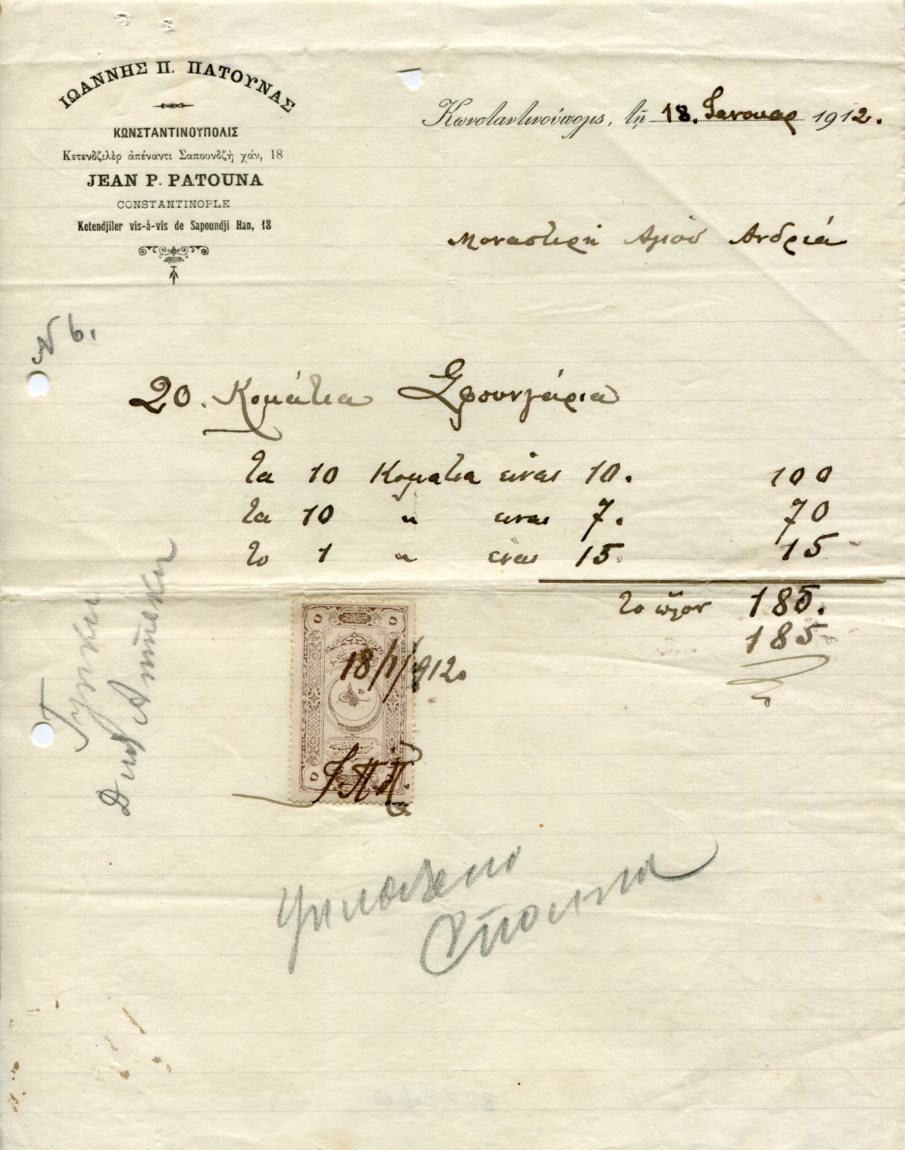 ΙΩΑΝΝΗΣ Π. ΠΑΤΟΥΝΑΣ
ΚΩΝΣΤΑΝΤΙΝΟΥΠΟΛΙΣ
Κετενδζιλὲρ ἀπέναντι Σαπουνδζῆ χάν, 18
JEAN P. PATOUNA
CONSTANTINOPLE
Ketendjiler vis-à-vis de Sapoundji Han, 18
Κωνσταντινούπολις, τῇ 18. Ιανουαρ 1912.
Μοναστιρη Αγιου Ανδριά
N 6.
20. Κομάτια Σφουνγάρια
τα 10 Κοματια είναι 10. 100
τα 10 " ειναι 7. 70
το 1 " είναι 15 15
το ὅλον 185.
185
18/1/912
Ι.Π.Π.